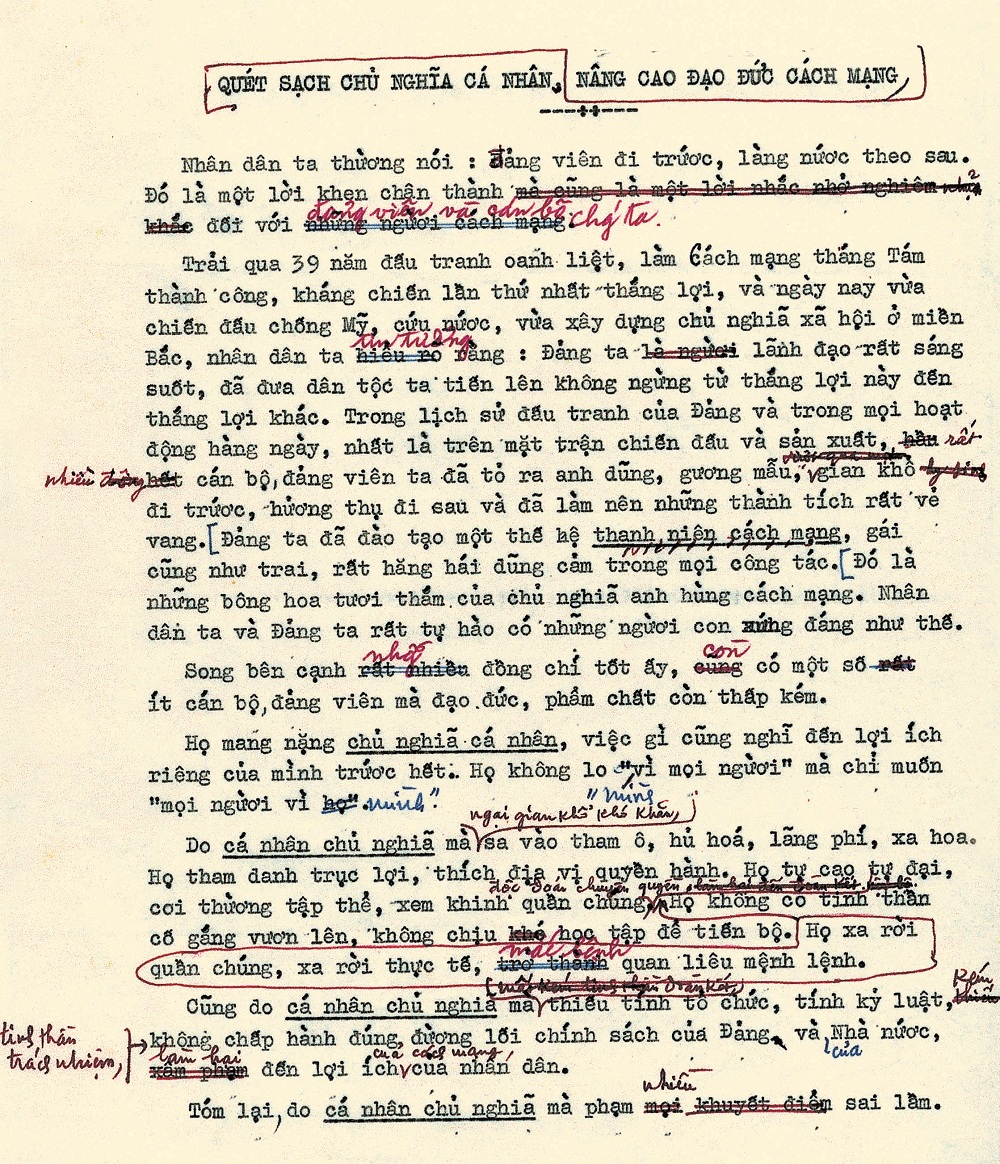 QUÉT SẠCH CHỦ NGHĨA CÁ NHÂN, NÂNG CAO ĐẠO ĐỨC CÁCH MẠNG,
Nhân dân ta thường nói : Đảng viên đi trước, làng nước theo sau.
Đó là một lời khen chân thành mà cũng là một lời nhắc nhở nghiêm
đảng viên và cán bộ chúng ta.
khắc đối với những người cách mạng.
Trải qua 39 năm đấu tranh oanh liệt, làm Cách mạng thắng Tám
thành công, kháng chiến lần thứ nhất thắng lợi, và ngày nay vừa
chiến đấu chống Mỹ, cứu nước, vừa xây dựng chủ nghiã xã hội ở miền
tin tưởng
Bắc, nhân dân ta hiểu rõ rằng : Đảng ta là người lãnh đạo rất sáng
suốt, đã đưa dân tộc ta tiến lên không ngừng từ thắng lợi này đến
thắng lợi khác. Trong lịch sử đấu tranh của Đảng và trong mọi hoạt
động hàng ngày, nhất là trên mặt trận chiến đấu và sản xuất, hầu rất
nhiều hết cán bộ, đảng viên ta đã tỏ ra anh dũng, gương mẫu, gian khổ
đi trước, hưởng thụ đi sau và đã làm nên những thành tích rất vẻ
vang. [Đảng ta đã đào tạo một thế hệ thanh niên cách mạng, gái
cũng như trai, rất hăng hái dũng cảm trong mọi công tác. [Đó là
những bông hoa tươi thắm của chủ nghiã anh hùng cách mạng. Nhân
dân ta và Đảng ta rất tự hào có những người con xứng đáng như thế.
còn
Song bên cạnh rất nhiều đồng chí tốt ấy, cũng có một số rất
ít cán bộ, đảng viên mà đạo đức, phẩm chất còn thấp kém.
Họ mang nặng chủ nghiã cá nhân, việc gì cũng nghĩ đến lợi ích
riêng của mình trước hết. Họ không lo "vì mọi người" mà chỉ muốn
"mình
"mọi người vì họ". mình".
ngại gian khổ khó khăn,
Do cá nhân chủ nghiã mà sa vào tham ô, hủ hoá, lãng phí, xa hoa.
Họ tham danh trục lợi, thích địa vị quyền hành. Họ tự cao tự đại,
độc đoán chuyên quyền,
coi thường tập thể, xem khinh quần chúng. Họ không có tinh thần
cố gắng vươn lên, không chịu khó học tập để tiến bộ. Họ xa rời
mắc bệnh
quần chúng, xa rời thực tế, trở thành quan liêu mệnh lệnh.
mất đoàn kết,
Cũng do cá nhân chủ nghiã mà thiếu tính tổ chức, tính kỷ luật, kém
tinh thần trách nhiệm, không chấp hành đúng đường lối chính sách của Đảng và Nhà nước,
của
làm hại của cách mạng,
xâm phạm đến lợi ích của nhân dân.
nhiều
Tóm lại, do cá nhân chủ nghiã mà phạm mọi khuyết điểm sai lầm.